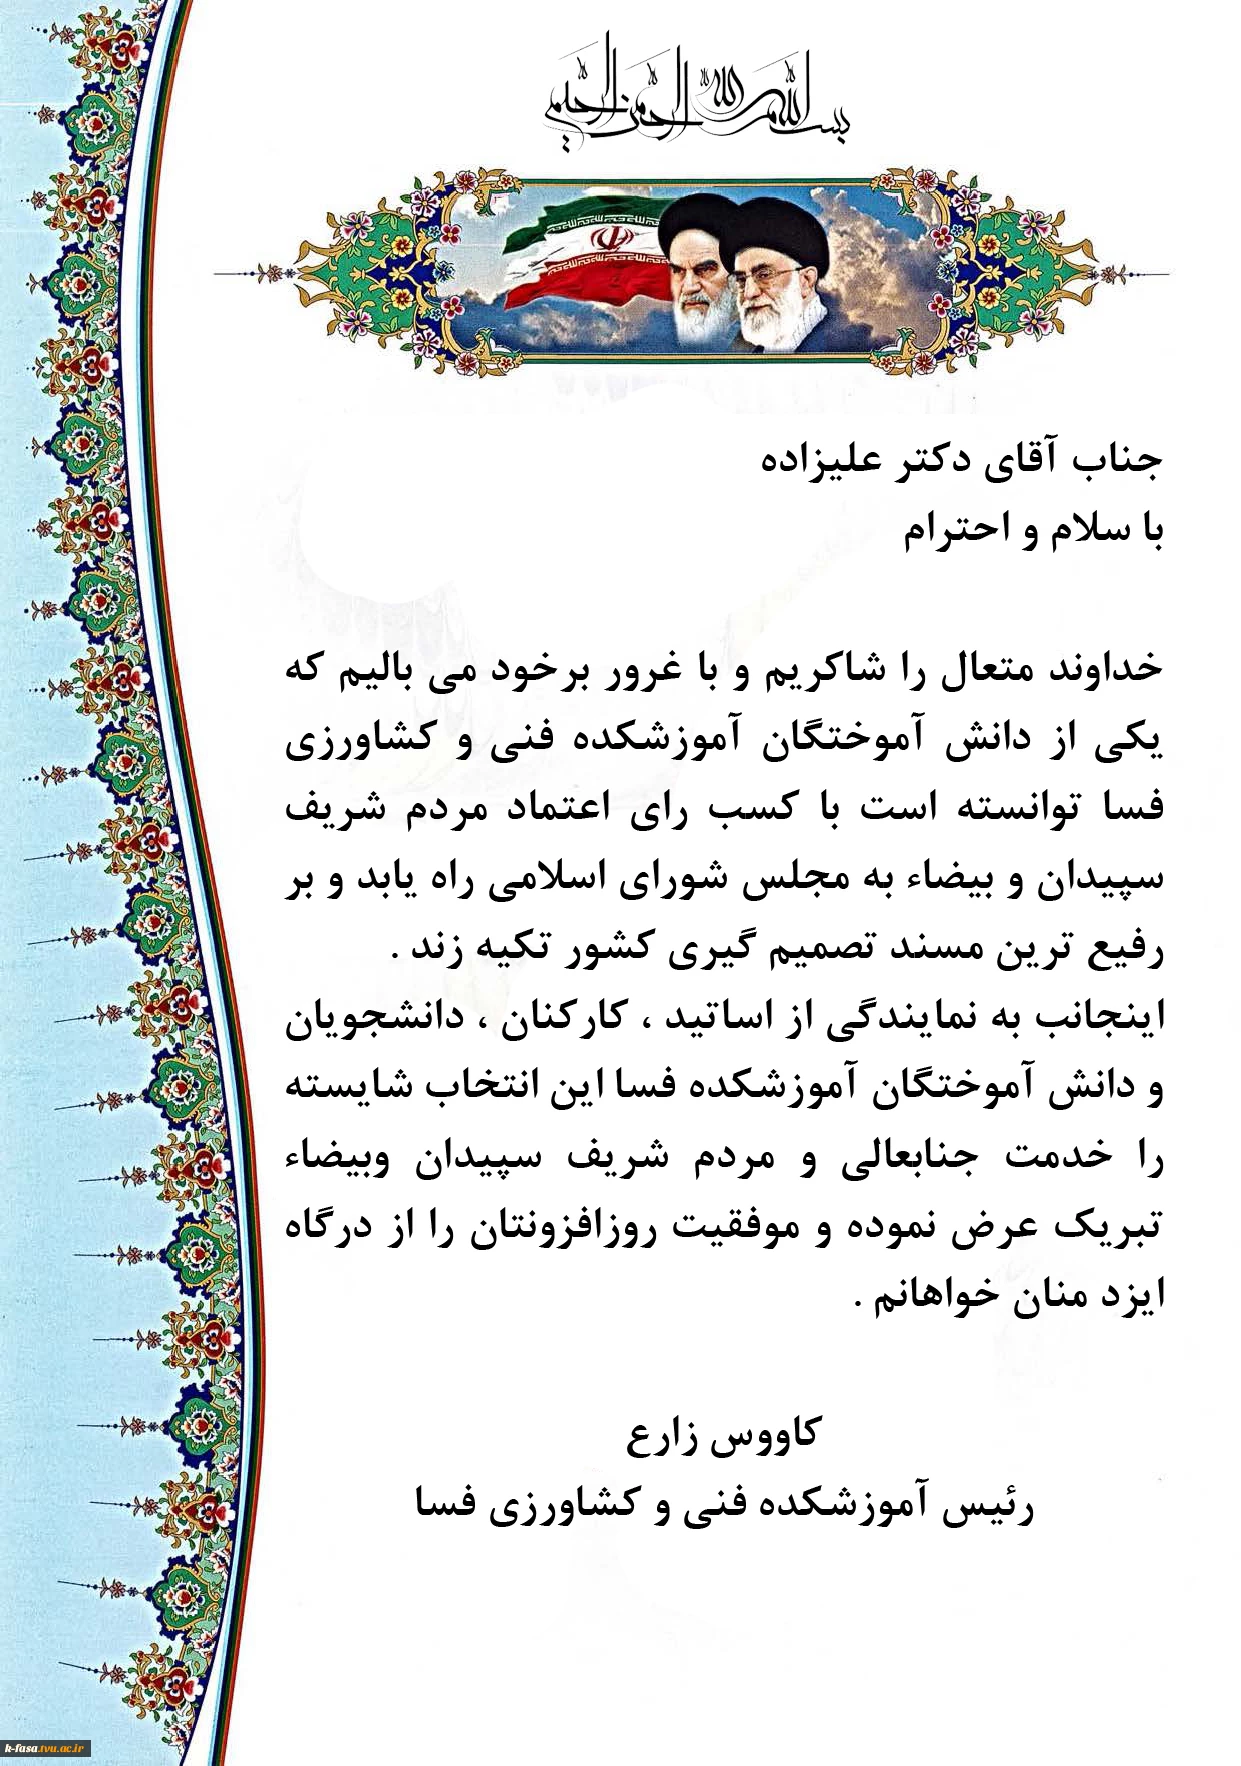 بسم الله الرحمن الرحیم
جناب آقای دکتر علیزاده
با سلام و احترام
خداوند متعال را شاکریم و با غرور برخود می بالیم که
یکی از دانش آموختگان آموزشکده فنی و کشاورزی
فسا توانسته است با کسب رای اعتماد مردم شریف
سپیدان و بیضاء به مجلس شورای اسلامی راه یابد و بر
رفیع ترین مسند تصمیم گیری کشور تکیه زند .
اینجانب به نمایندگی از اساتید ، کارکنان ، دانشجویان
و دانش آموختگان آموزشکده فسا این انتخاب شایسته
را خدمت جنابعالی و مردم شریف سپیدان وبیضاء
تبریک عرض نموده و موفقیت روزافزونتان را از درگاه
ایزد منان خواهانم .
کاووس زارع
رئیس آموزشکده فنی و کشاورزی فسا
k-fasa.tvu.ac.ir